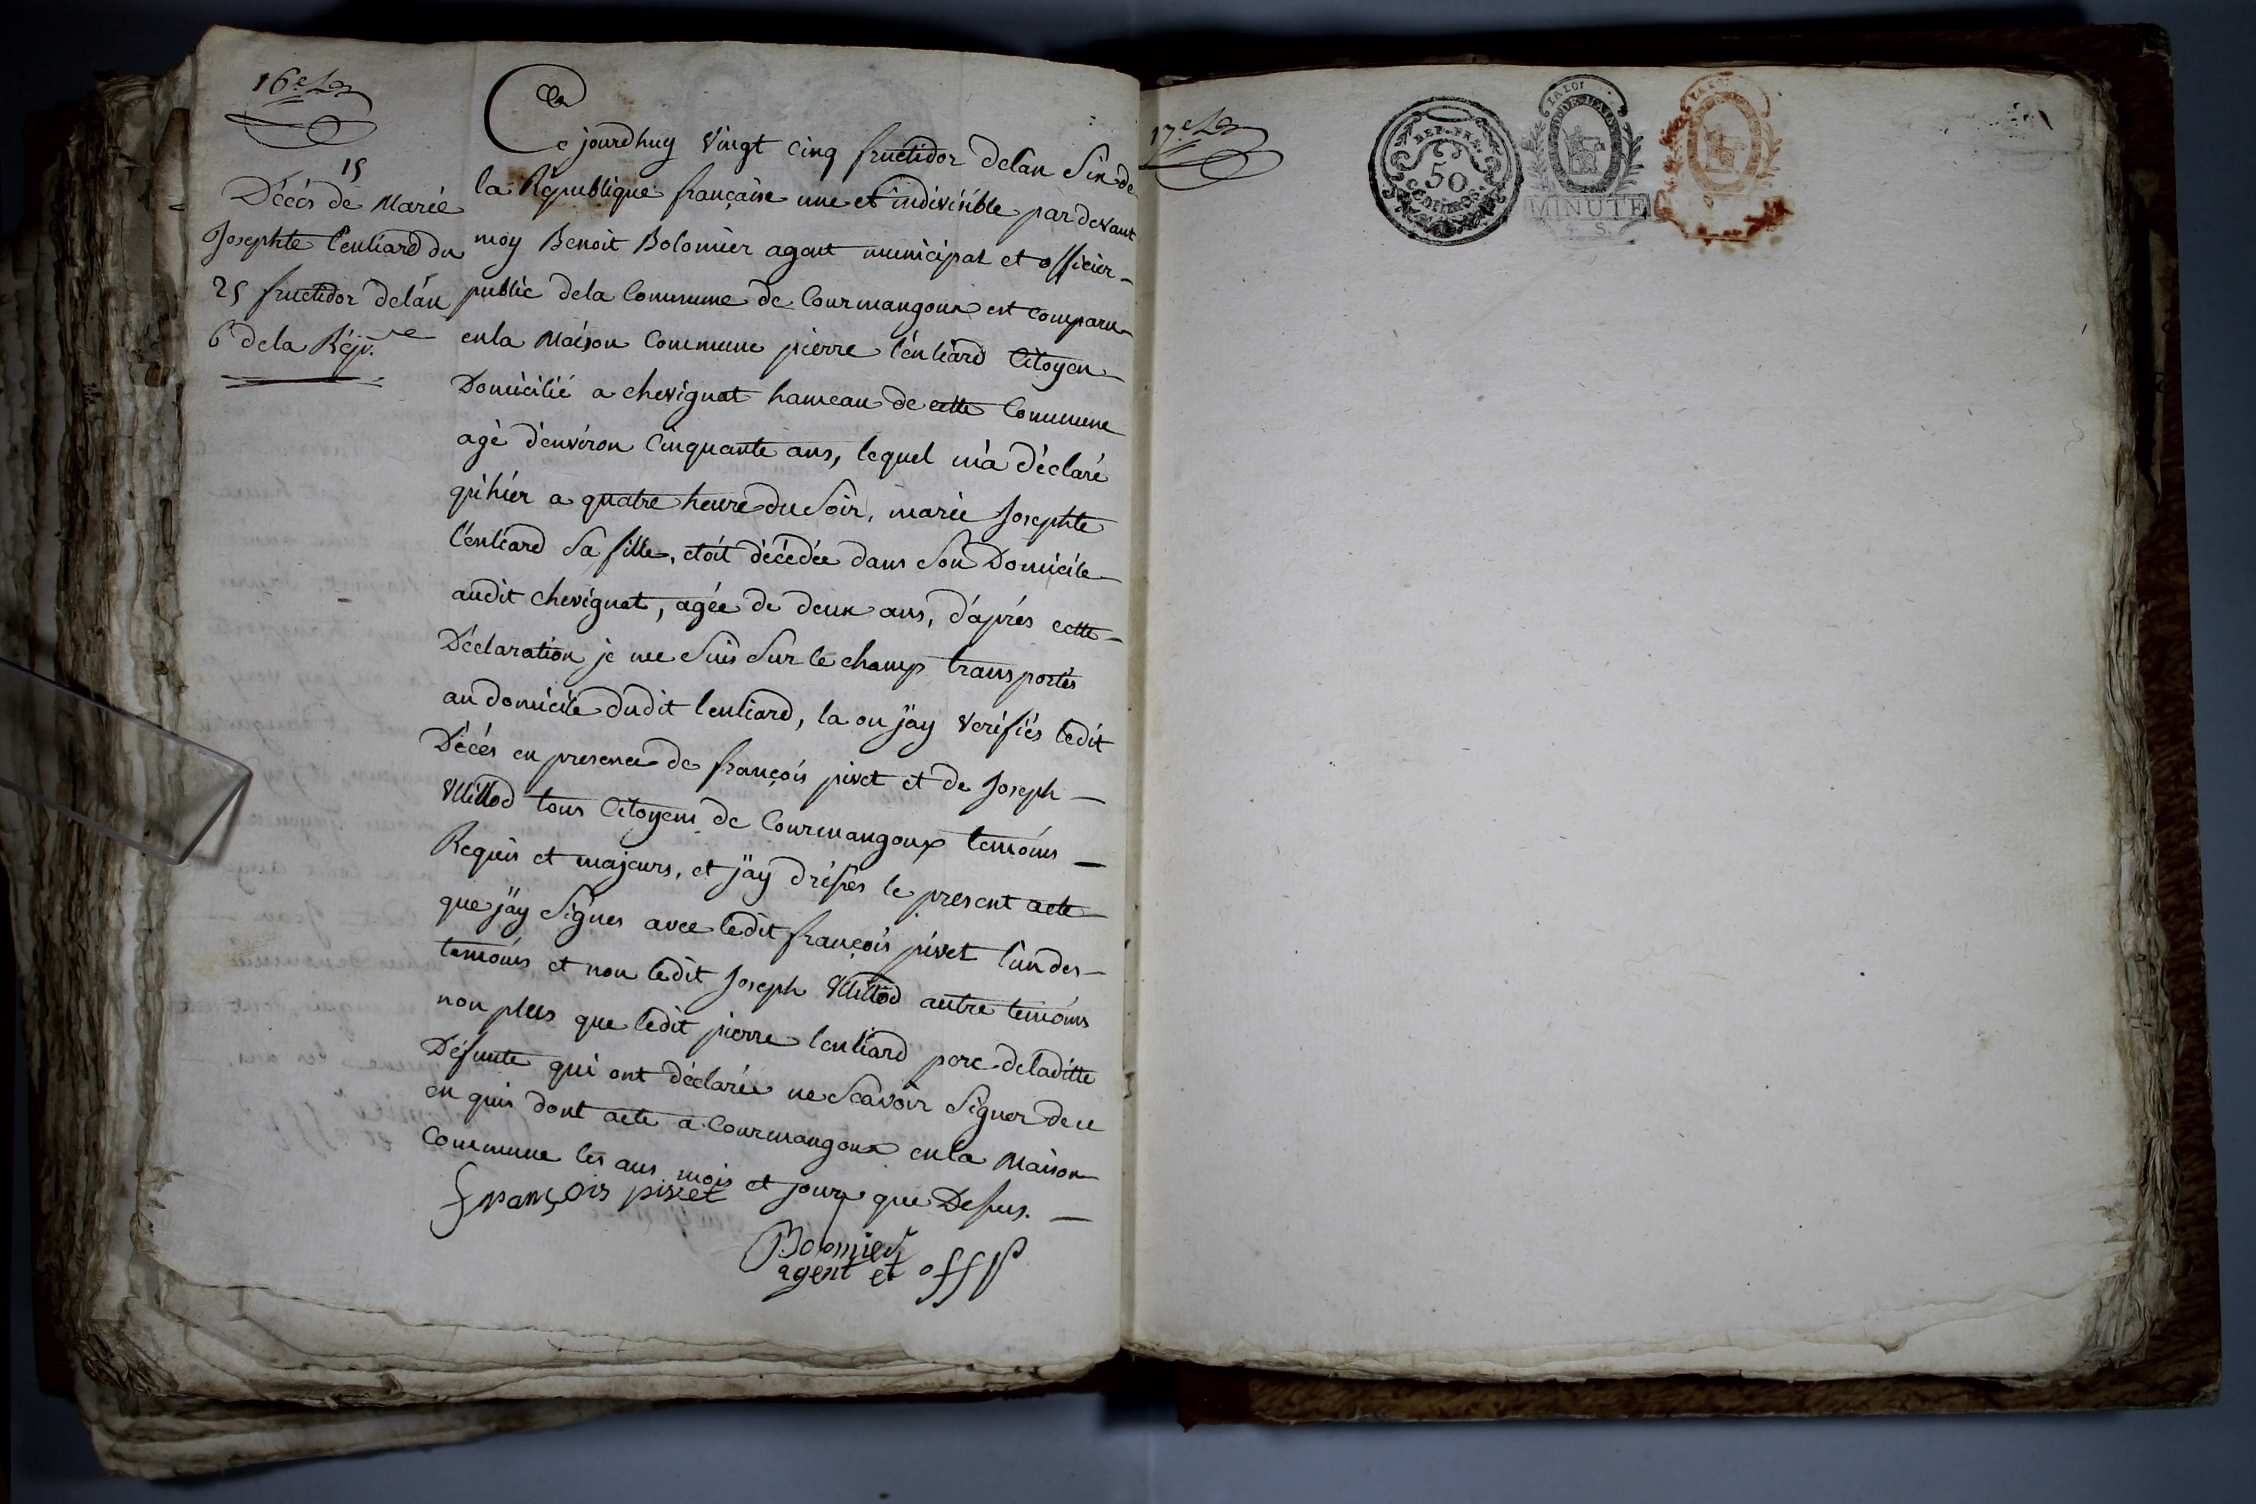 16e
15
Décés de Marie
Josephte lentiard du
25 fructidor delan
6e dela Rép.ue
Ce jourdhuy vingt cinq fructidor delan Six de
la République française une et indivisible par devant
moy Benoit Bolomier agent municipal et officier
public dela Commune de Courmangoux est comparu
enla Maison Commune pierre lentiard Citoyen
Domicilié a chevignat hameau de cette Commune
agé d'environ Cinquante ans, lequel m'a déclaré
qu'hier a quatre heure du Soir, marie Josephte
lentiard Sa fille, etoit décedée dans Son Domicile
audit chevignat, agée de deux ans, d'aprés cette
Déclaration je me Suis Sur le champ transportés
au domicile dudit lentiard, la ou jäy verifiés ledit
Décés en presence de françois pivet et de Joseph
Millod tous Citoyens de Courmangoux temoins
Requis et majeurs, et jäy dressés le present acte
que jäy Signés avec ledit françois pivet l'un des
temoins et non ledit Joseph Millod autre temoins
non plus que ledit pierre lentiard pere deladitte
Défunte qui ont déclarée ne Scavoir Signer de ce
en quis dont acte a Courmangoux enla Maison
Commune les ans mois et jour que Dessus.
françois pivet
Bolomier
agent et offp
17e
REP. FRA.
50
centimes.
LA LOI
MINUTE
S.
LA LOI